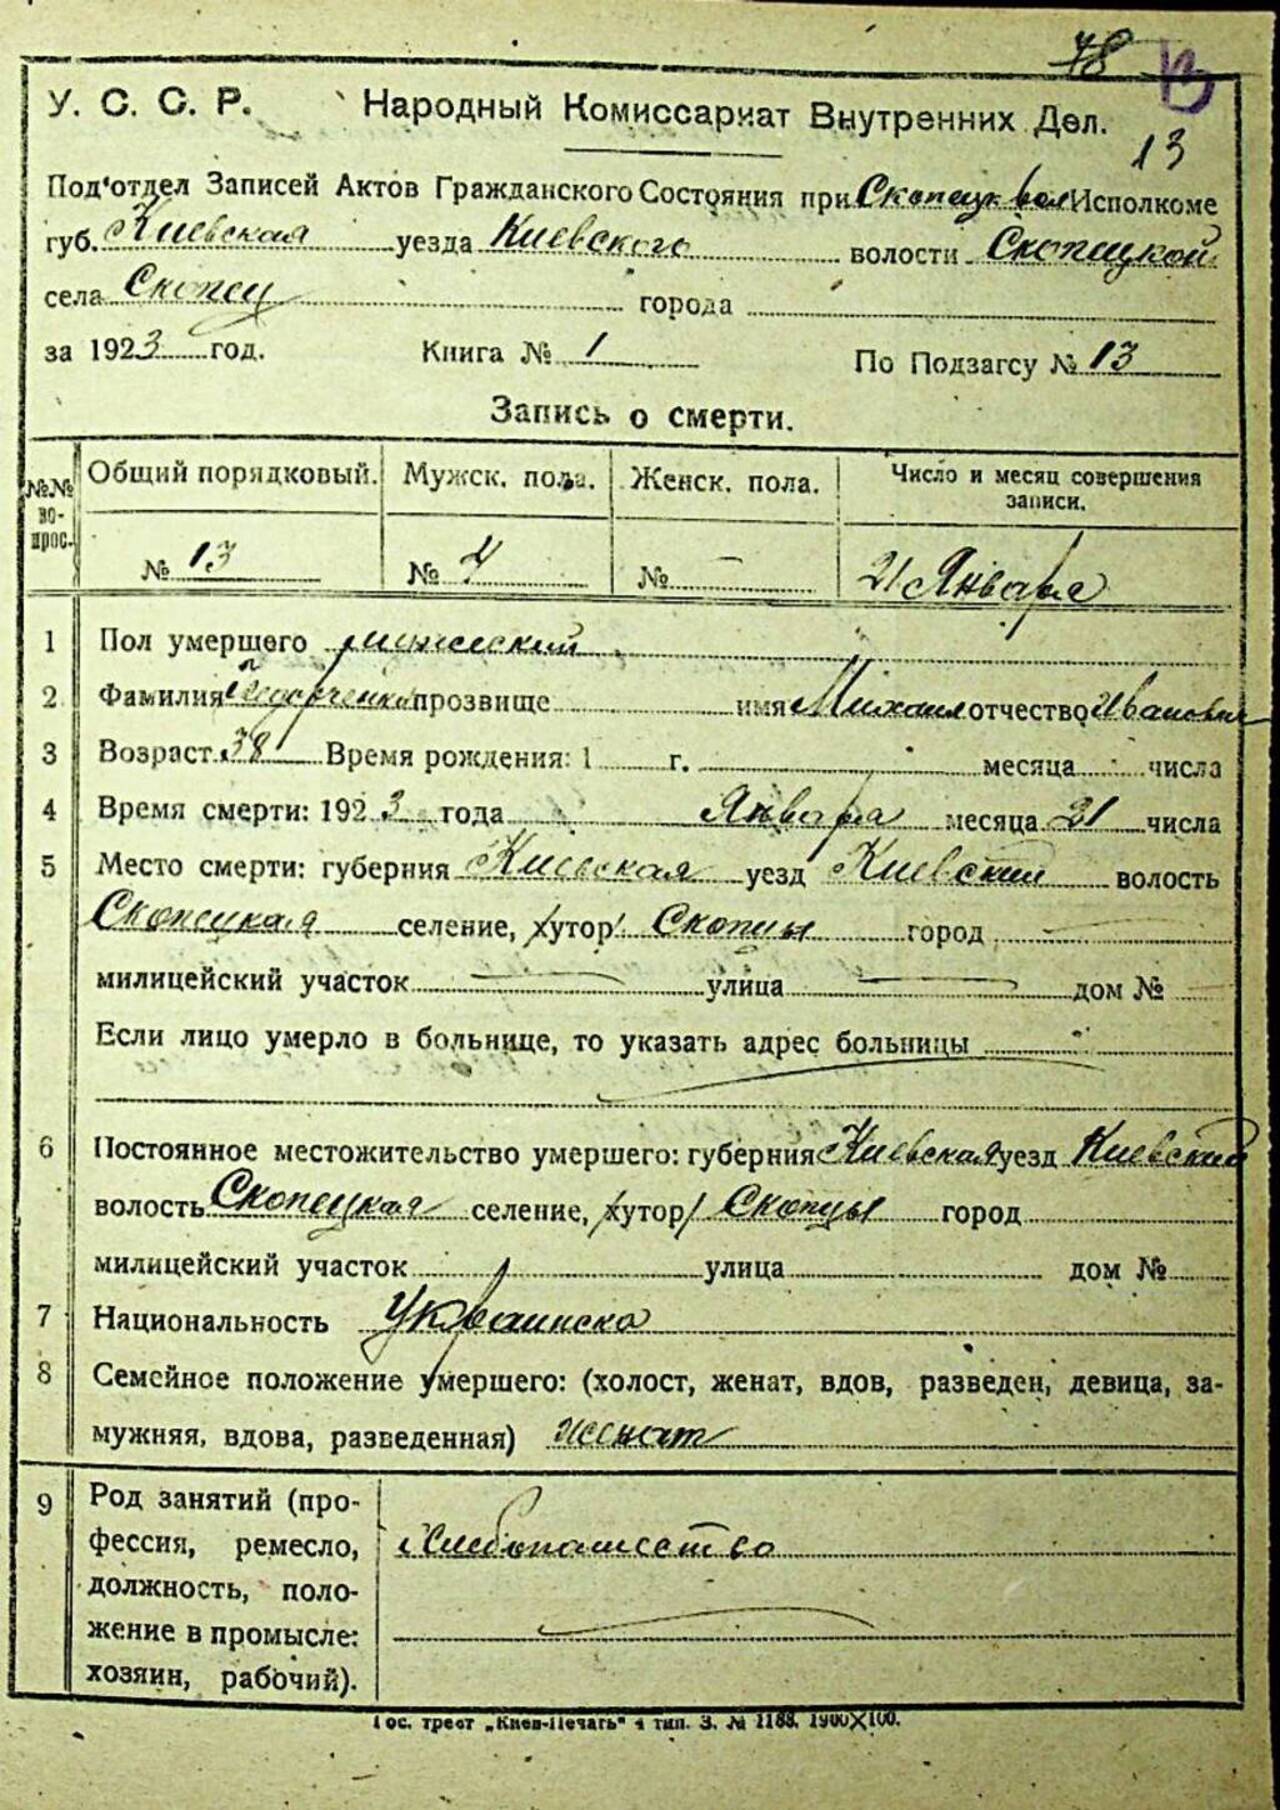 78 В
У. С. С. Р. Народный Комиссариат Внутренних Дел.
13
Под'отдел Записей Актов Гражданского Состояния при Скопецк вол Исполкоме
губ. Киевская уезда Киевского волости Скопецкой
села Скопцы города
за 1923 год. Книга № 1 По Подзагсу № 13
Запись о смерти.
№№ вопрос. Общий порядковый. Мужск. пола. Женск. пола. Число и месяц совершения записи.
№ 13 № 4 № – 21 Января
1 Пол умершего мужеский
2 Фамилия прозвище имя Михаил отчество Иванович
3 Возраст 38 Время рождения: 1 г. месяца числа
4 Время смерти: 1923 года Января месяца 21 числа
5 Место смерти: губерния Киевская уезд Киевский волость
Скопецкая селение, хутор Скопцы город
милицейский участок — улица — дом №
Если лицо умерло в больнице, то указать адрес больницы
6 Постоянное местожительство умершего: губерния Киевская уезд Киевский
волость Скопецкая селение, хутор Скопцы город
милицейский участок улица дом №
7 Национальность Украинска
8 Семейное положение умершего: (холост, женат, вдов, разведен, девица, за-
мужняя, вдова, разведенная) женат
9 Род занятий (про-
фессия, ремесло, Хлебопашество
должность, поло-
жение в промысле:
хозяин, рабочий).
Гос. трест „Киев-Печать" 4 тип. З. № 1188. 1900X100.